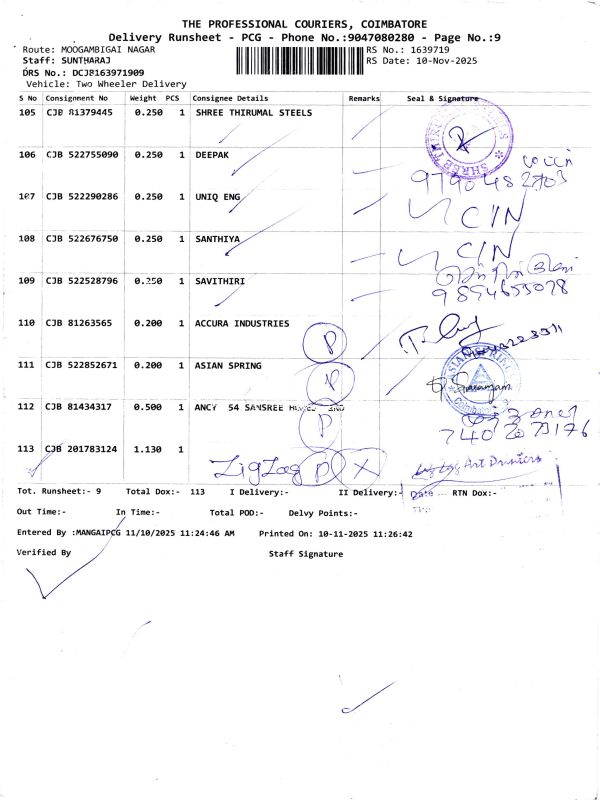 THE PROFESSIONAL COURIERS, COIMBATORE
Delivery Runsheet - PCG - Phone No.:9047080280 - Page No.:9
Route: MOOGAMBIGAI NAGAR RS No.: 1639719
Staff: SUNTHARAJ RS Date: 10-Nov-2025
DRS No.: DCJB163971909
Vehicle: Two Wheeler Delivery
S No Consignment No Weight PCS Consignee Details Remarks Seal & Signature
105 CJB 81379445 0.250 1 SHREE THIRUMAL STEELS
106 CJB 522755090 0.250 1 DEEPAK
107 CJB 522290286 0.250 1 UNIQ ENG C/N
108 CJB 522676750 0.250 1 SANTHIYA C/N
109 CJB 522528796 0.250 1 SAVITHIRI
9894655078
110 CJB 81263565 0.200 1 ACCURA INDUSTRIES P
111 CJB 522852671 0.200 1 ASIAN SPRING P
112 CJB 81434317 0.500 1 ANCY 54 SANSREE P
113 CJB 201783124 1.130 1 ZigZag P X
Art Printers
Tot. Runsheet:- 9 Total Dox:- 113 I Delivery:- II Delivery:- Date RTN Dox:-
Out Time:- In Time:- Total POD:- Delvy Points:-
Entered By :MANGAIPCG 11/10/2025 11:24:46 AM Printed On: 10-11-2025 11:26:42
Verified By Staff Signature